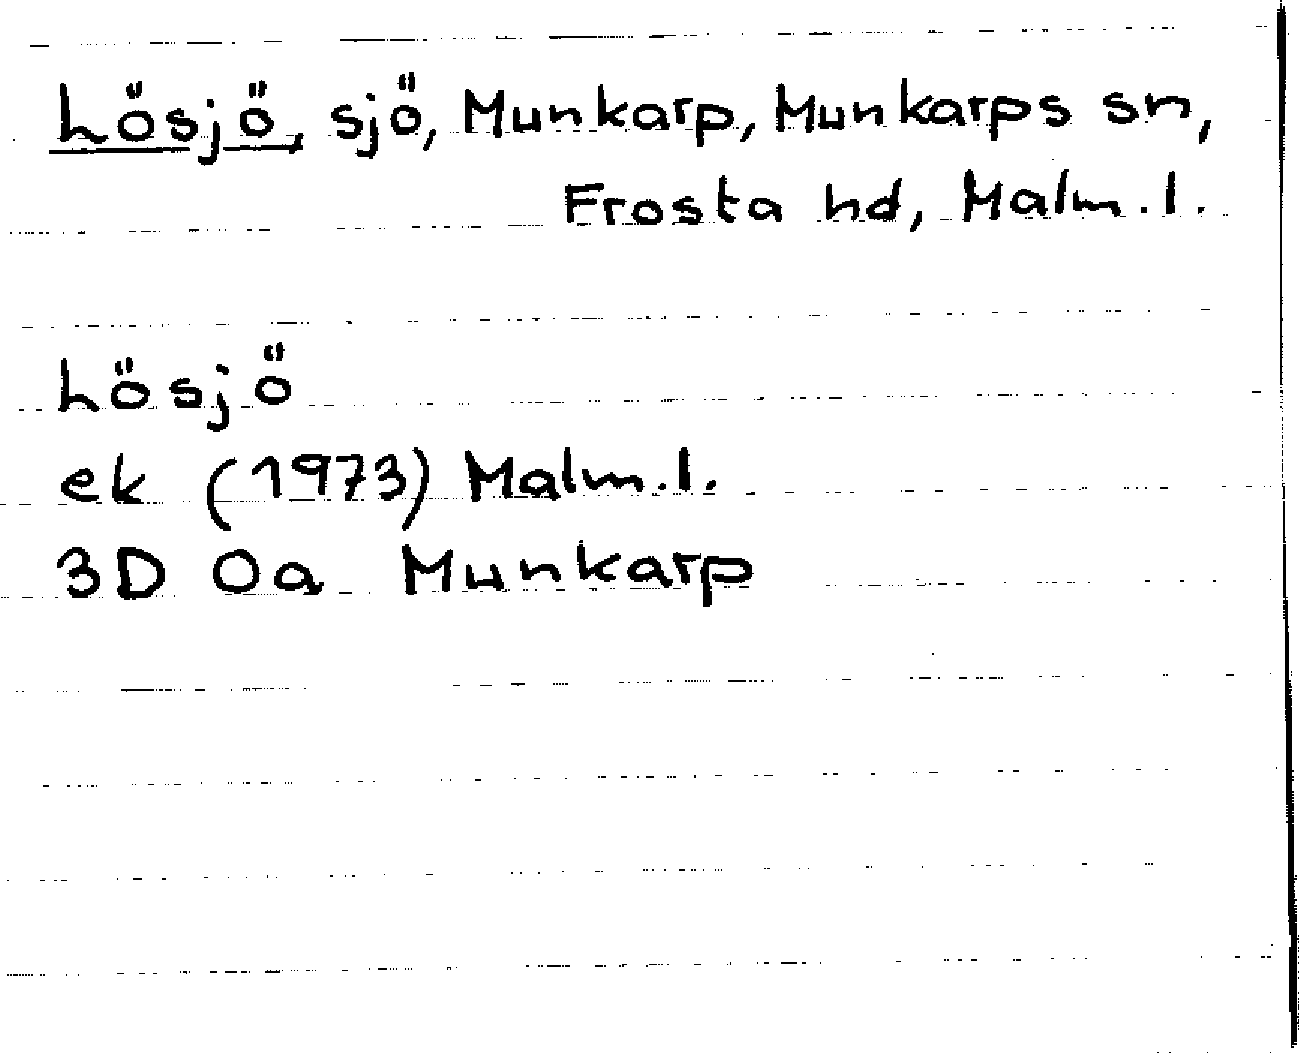 Lösjö, sjö, Munkarp, Munkarps sn,
Frosta hd, Malm.l.
Lösjö
ek (1973) Malm.l.
3D 0a Munkarp